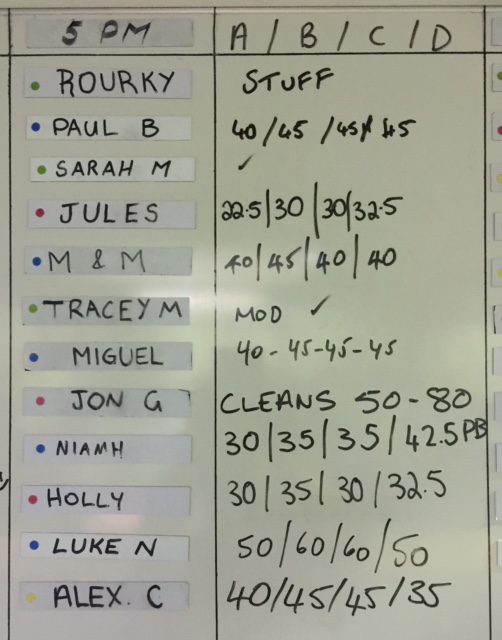 5 PM A / B / C / D
ROURKY STUFF
PAUL B 40 / 45 / 45 / 45
SARAH M ✓
JULES 22.5 | 30 | 30 | 32.5
M & M 40 | 45 | 40 | 40
TRACEY M MOD ✓
MIGUEL 40 - 45 - 45 - 45
JON G CLEANS 50 - 80
NIAMH 30 | 35 | 35 / 42.5 PB
HOLLY 30 | 35 | 30 / 32.5
LUKE N 50 / 60 / 60 / 50
ALEX. C 40 / 45 / 45 / 35